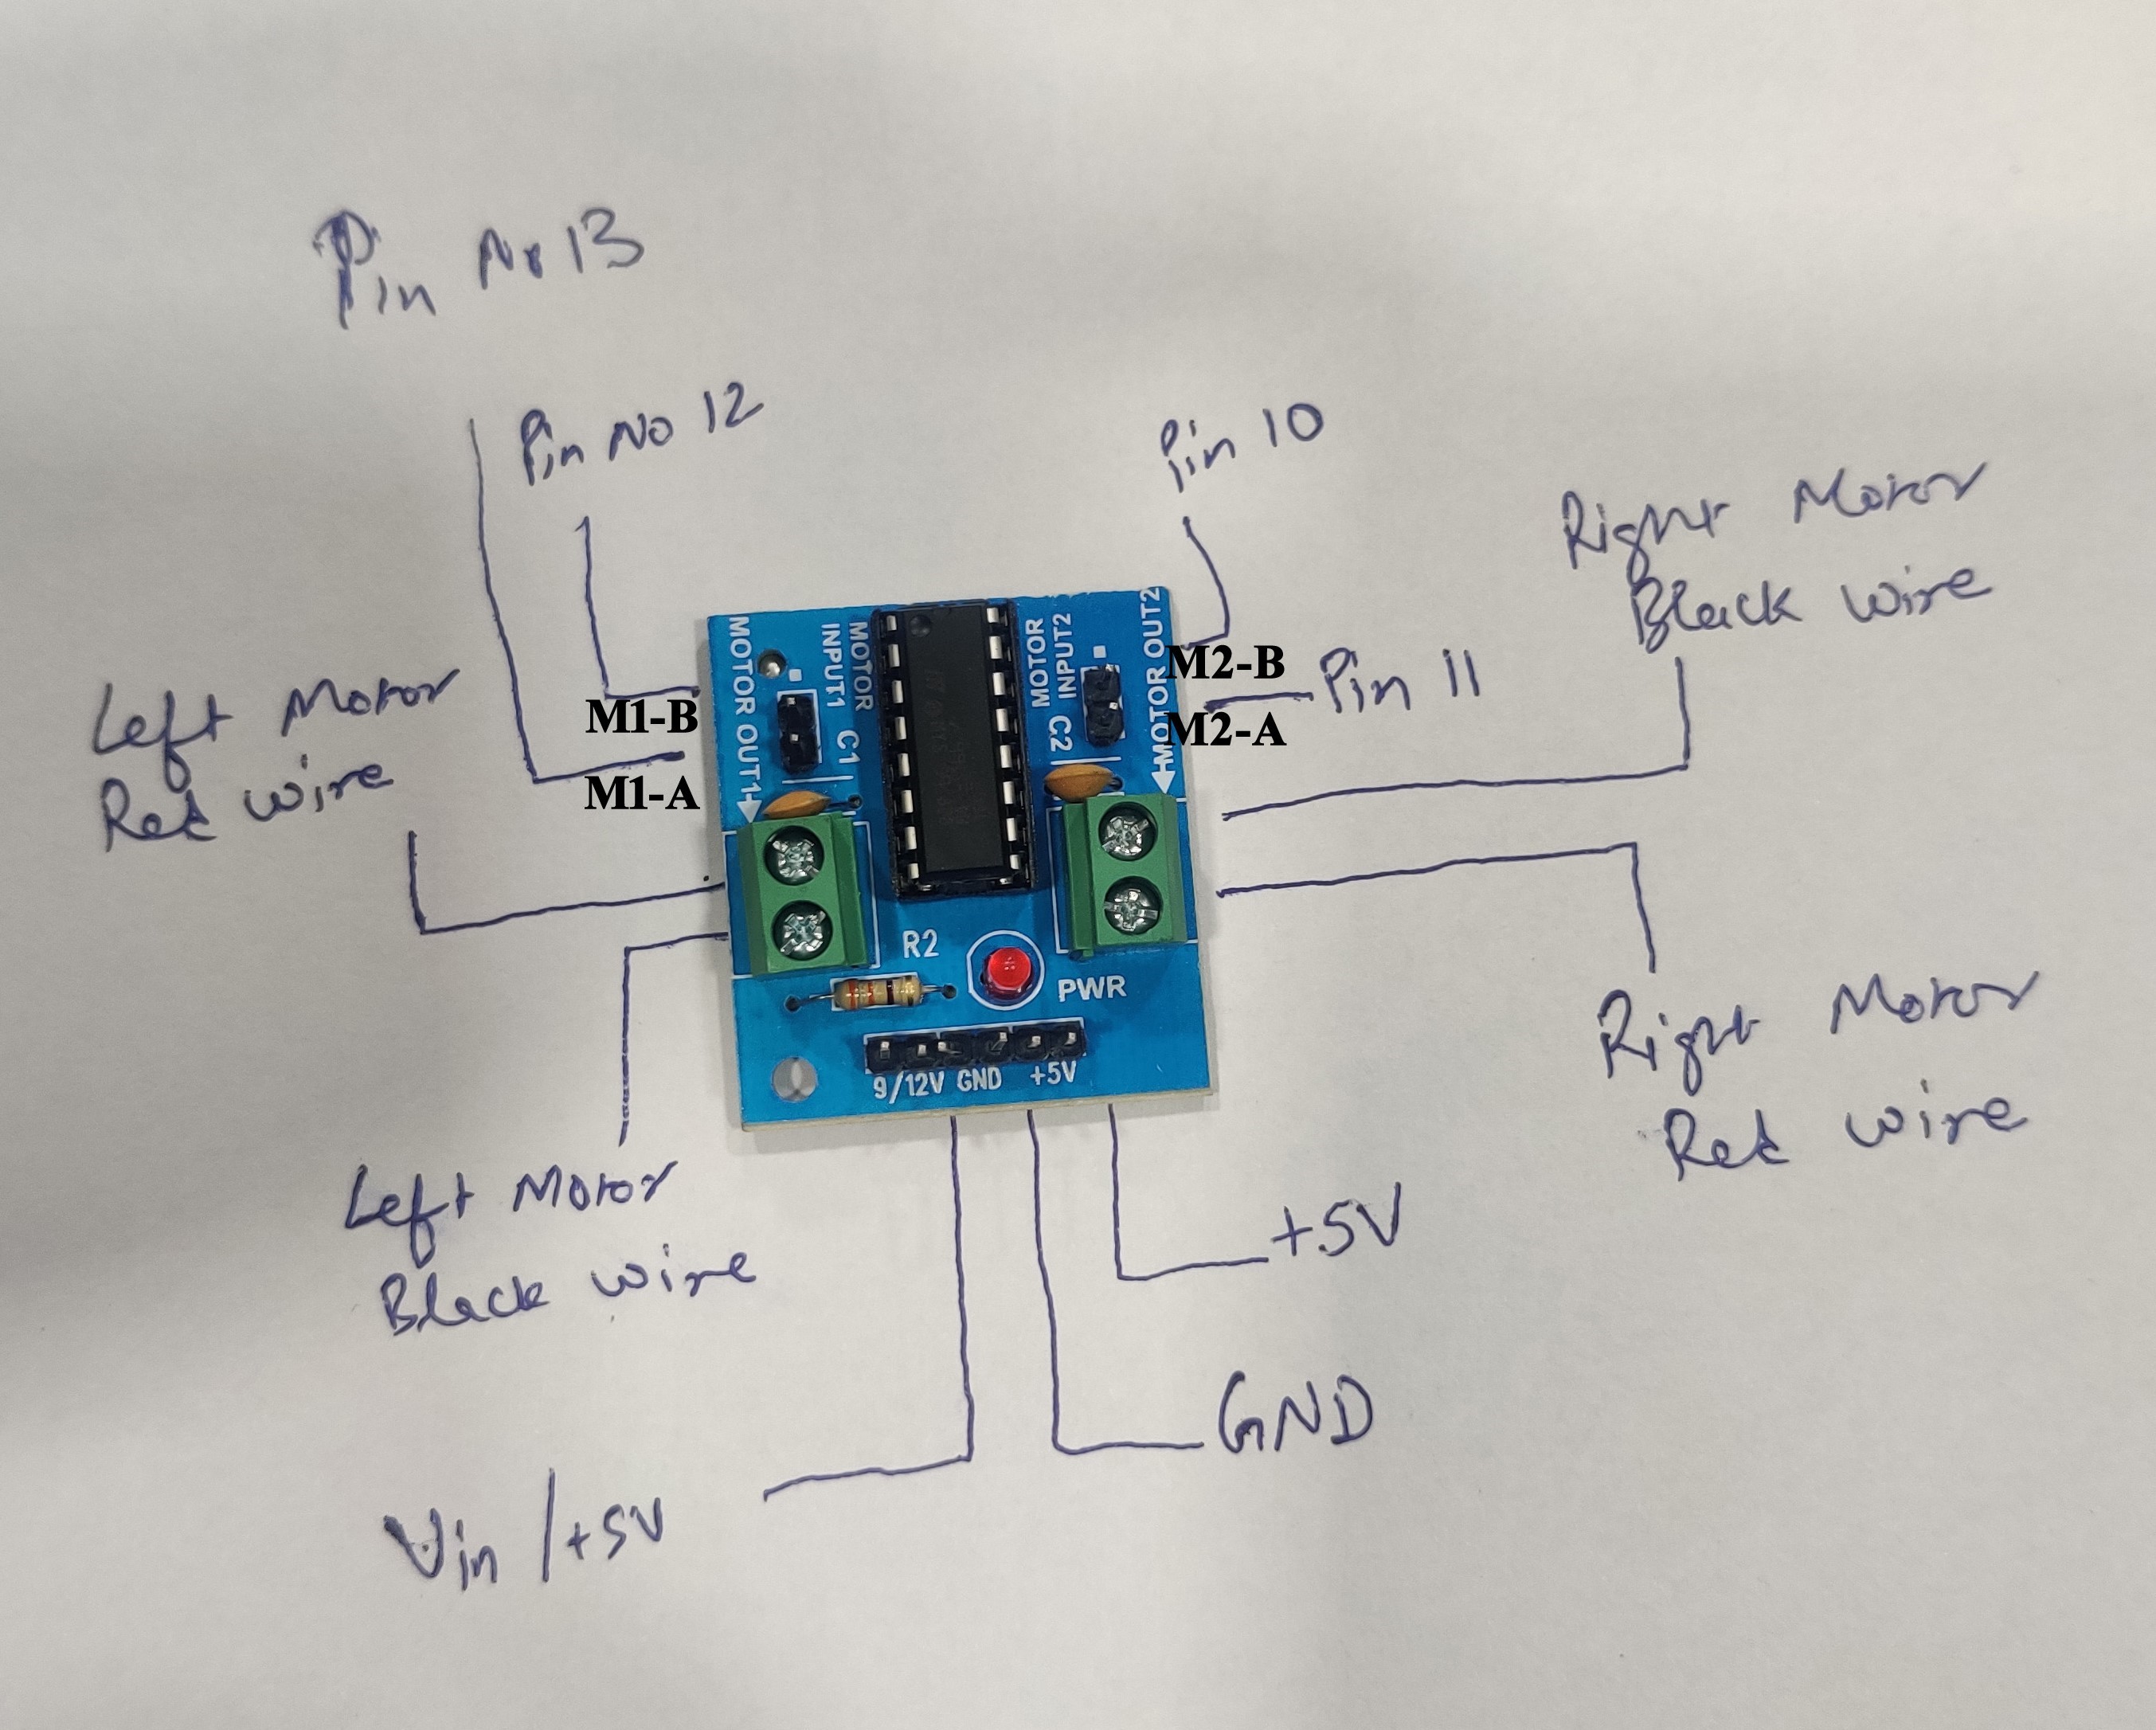 Pin No 13
Pin No 12
Pin 10
Right Motor
Black wire
Pin 11
Left Motor
Red wire
M1-B
M1-A
M2-B
M2-A
MOTOR OUT1
MOTOR
INPUT1
C1
MOTOR
INPUT2
C2
MOTOR OUT2
R2
PWR
9/12V GND +5V
Right Motor
Red wire
Left Motor
Black wire
+5V
GND
Vin/+5V